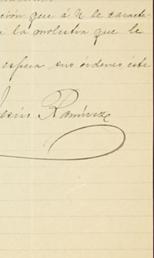 ción que á U. le caracte
a la molestia que le
espera sus órdenes este
Jesús Ramírez